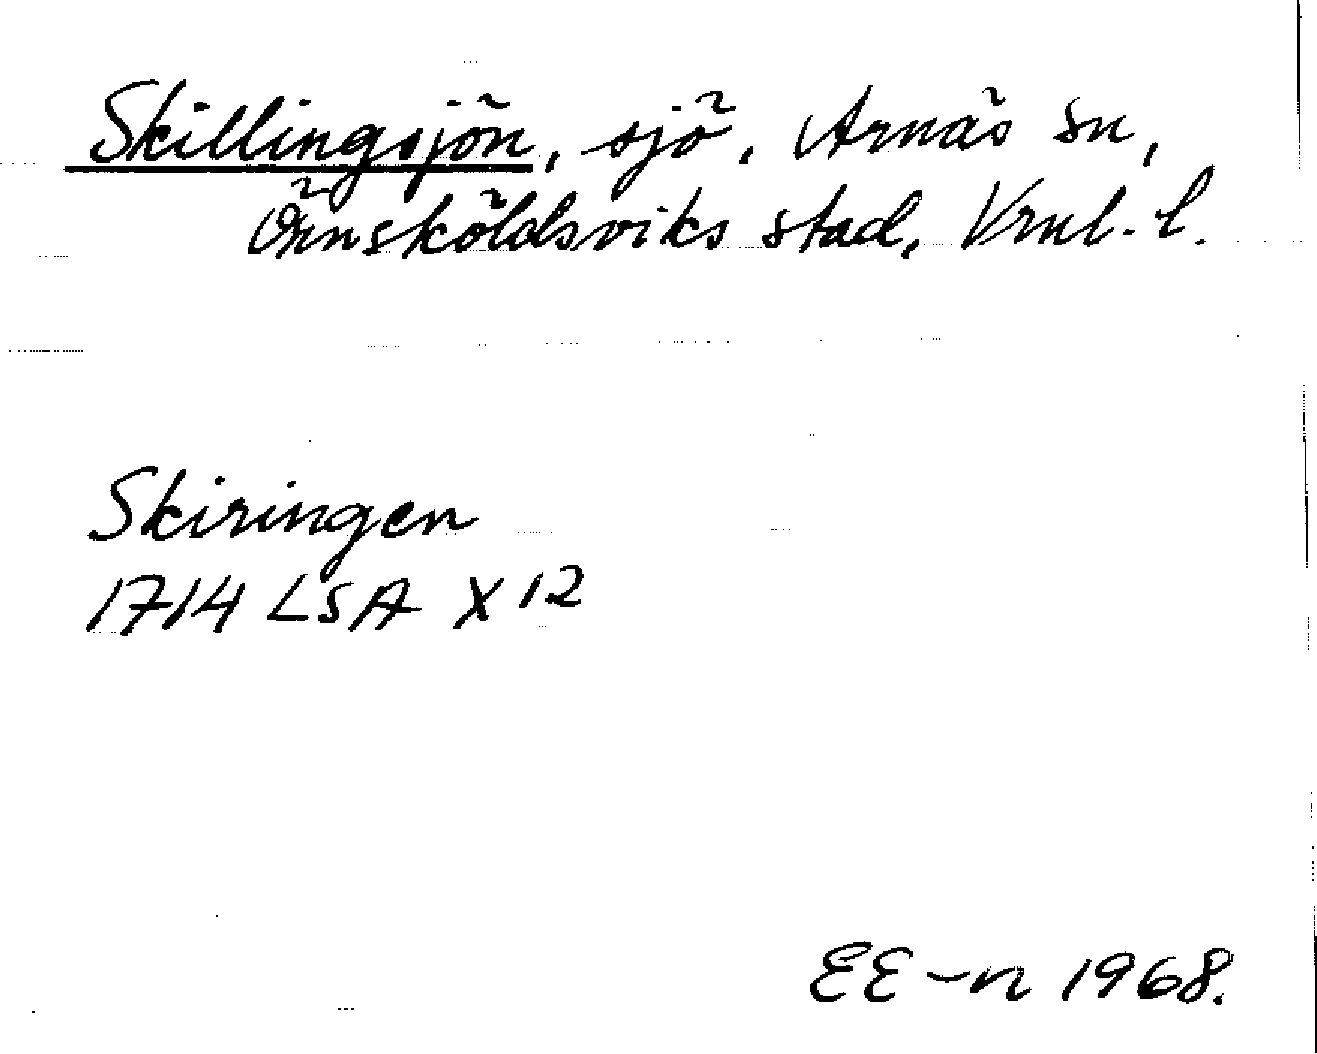 Skillingsjön, sjö, Arnäs sn,
Örnsköldsviks stad, Vrnl. l.
Skiringen
1714 LSA X 12
EE-n 1968.